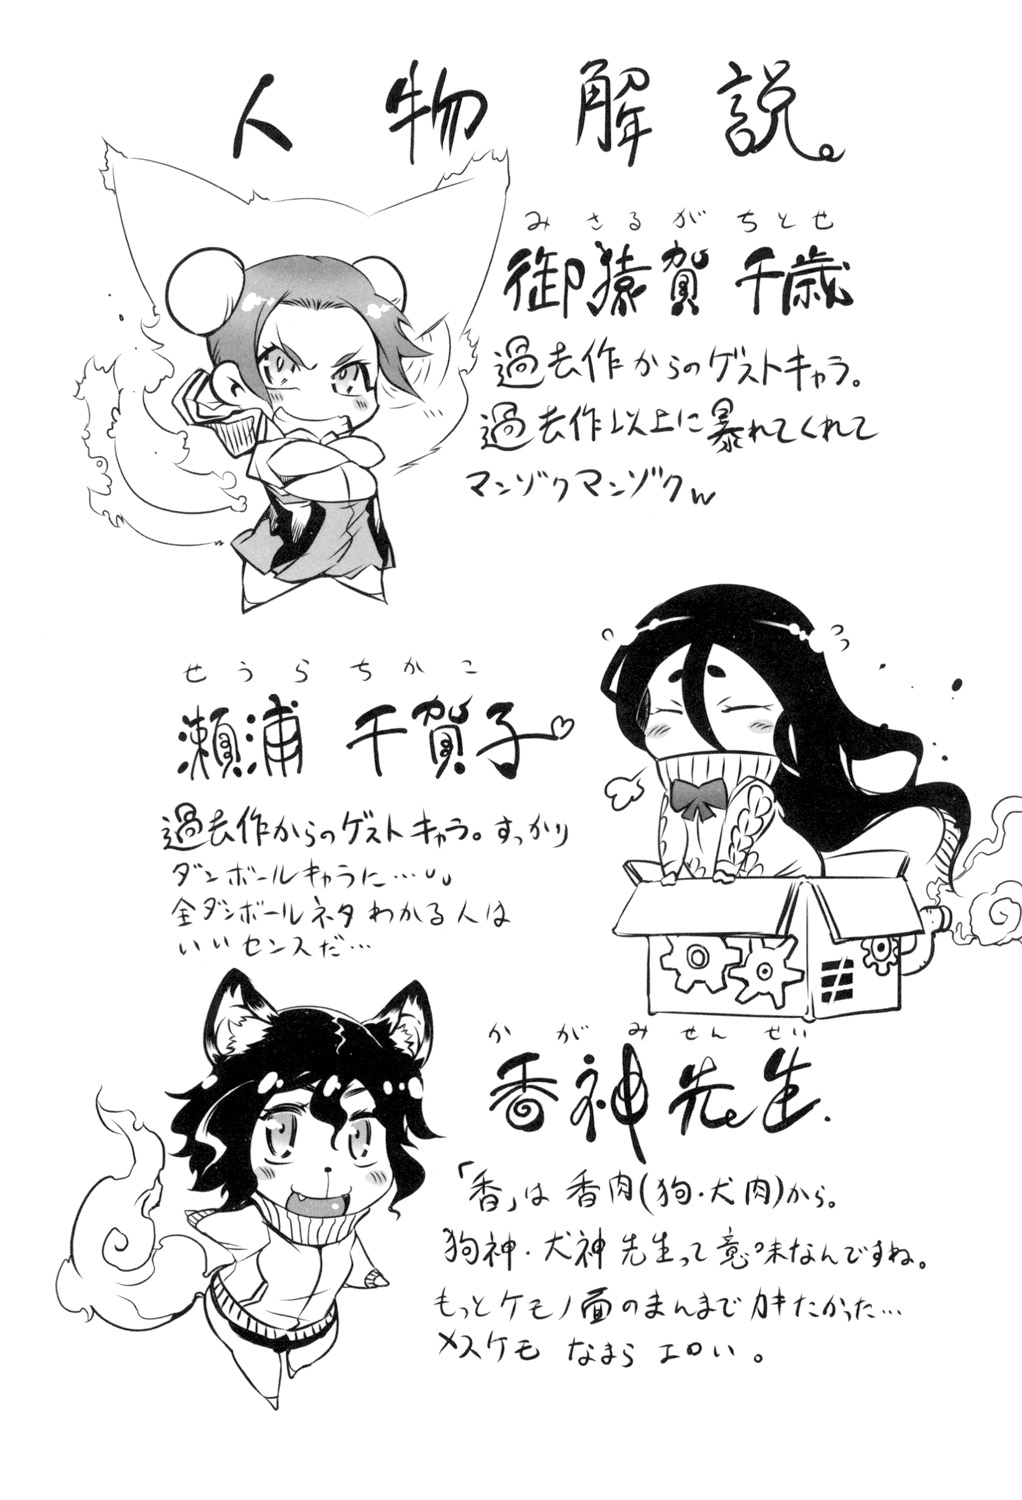 人物解説。
みさるが ちとせ
御猿賀 千歳
過去作からのゲストキャラ。
過去作以上に暴れてくれて
マンゾクマンゾクw
せうらちかこ
瀬浦 千賀子♡
過去作からのゲストキャラ。すっかり
ダンボールキャラに…
全ダンボールネタわかる人は
いいセンスだ…
かがみせんせい
香神先生.
「香」は香肉(狗・犬肉)から。
狗神・犬神先生って意味なんですね。
もっとケモノ面のまんまでカキたかった…
メスケモ なまら エロい。